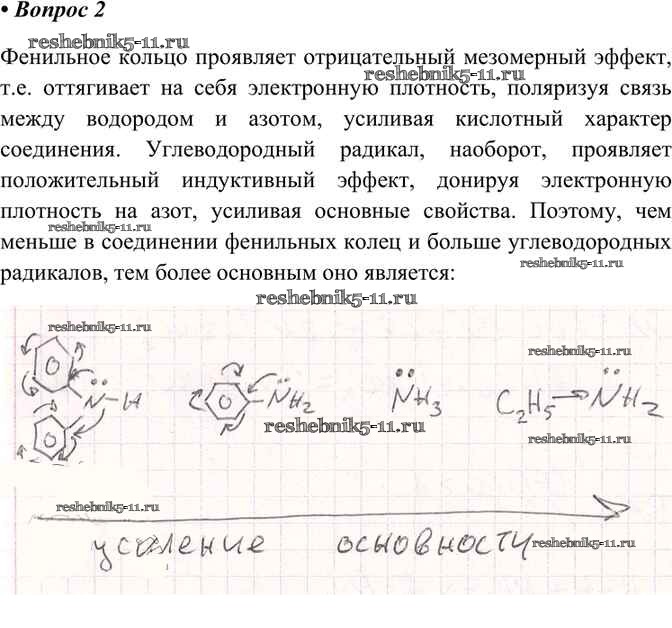 • Вопрос 2
reshebnik5-11.ru
Фенильное кольцо проявляет отрицательный мезомерный эффект,
reshebnik5-11.ru
т.е. оттягивает на себя электронную плотность, поляризуя связь
между водородом и азотом, усиливая кислотный характер
соединения. Углеводородный радикал, наоборот, проявляет
положительный индуктивный эффект, донируя электронную
плотность на азот, усиливая основные свойства. Поэтому, чем
reshebnik5-11.ru
меньше в соединении фенильных колец и больше углеводородных
reshebnik5-11.ru
радикалов, тем более основным оно является:
reshebnik5-11.ru
reshebnik5-11.ru
reshebnik5-11.ru
N-H NH2 NH3 C2H5 NH2
reshebnik5-11.ru
reshebnik5-11.ru
reshebnik5-11.ru
усиление основности
reshebnik5-11.ru